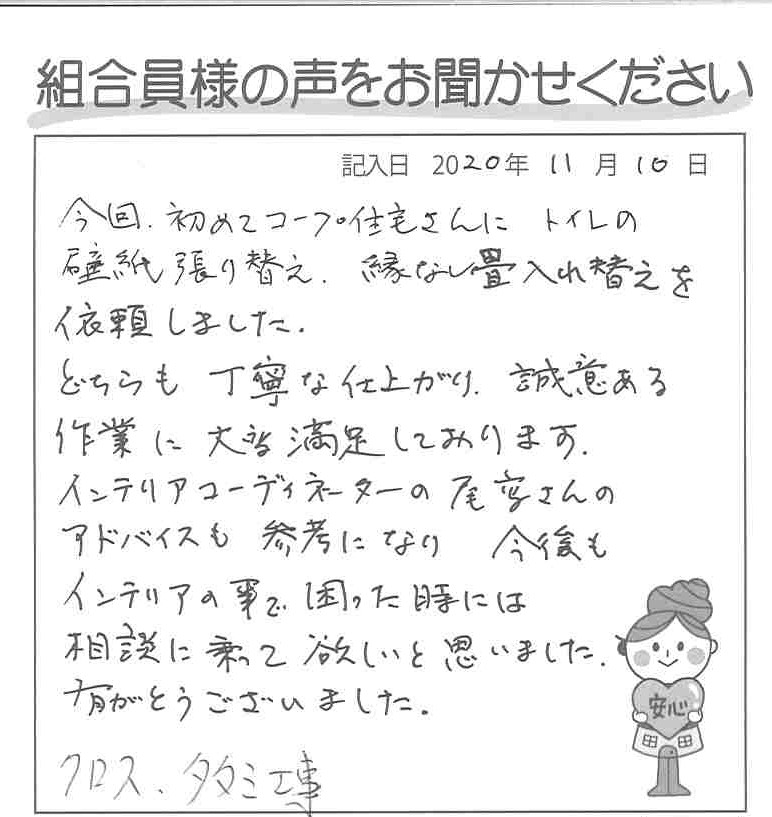 組合員様の声をお聞かせください
記入日 2020年 11月 10日
今回、初めてコープ住宅さんに トイレの
壁紙張り替え、縁なし畳入れ替えを
依頼しました。
どちらも 丁寧な仕上がり、誠意ある
作業に 大変満足しております。
インテリアコーディネーターの 尾 さんの
アドバイスも 参考になり 今後も
インテリアの事で 困った時には
相談に乗って 欲しいと思いました。
有がとうございました。
安心
クロス、タタミ工事